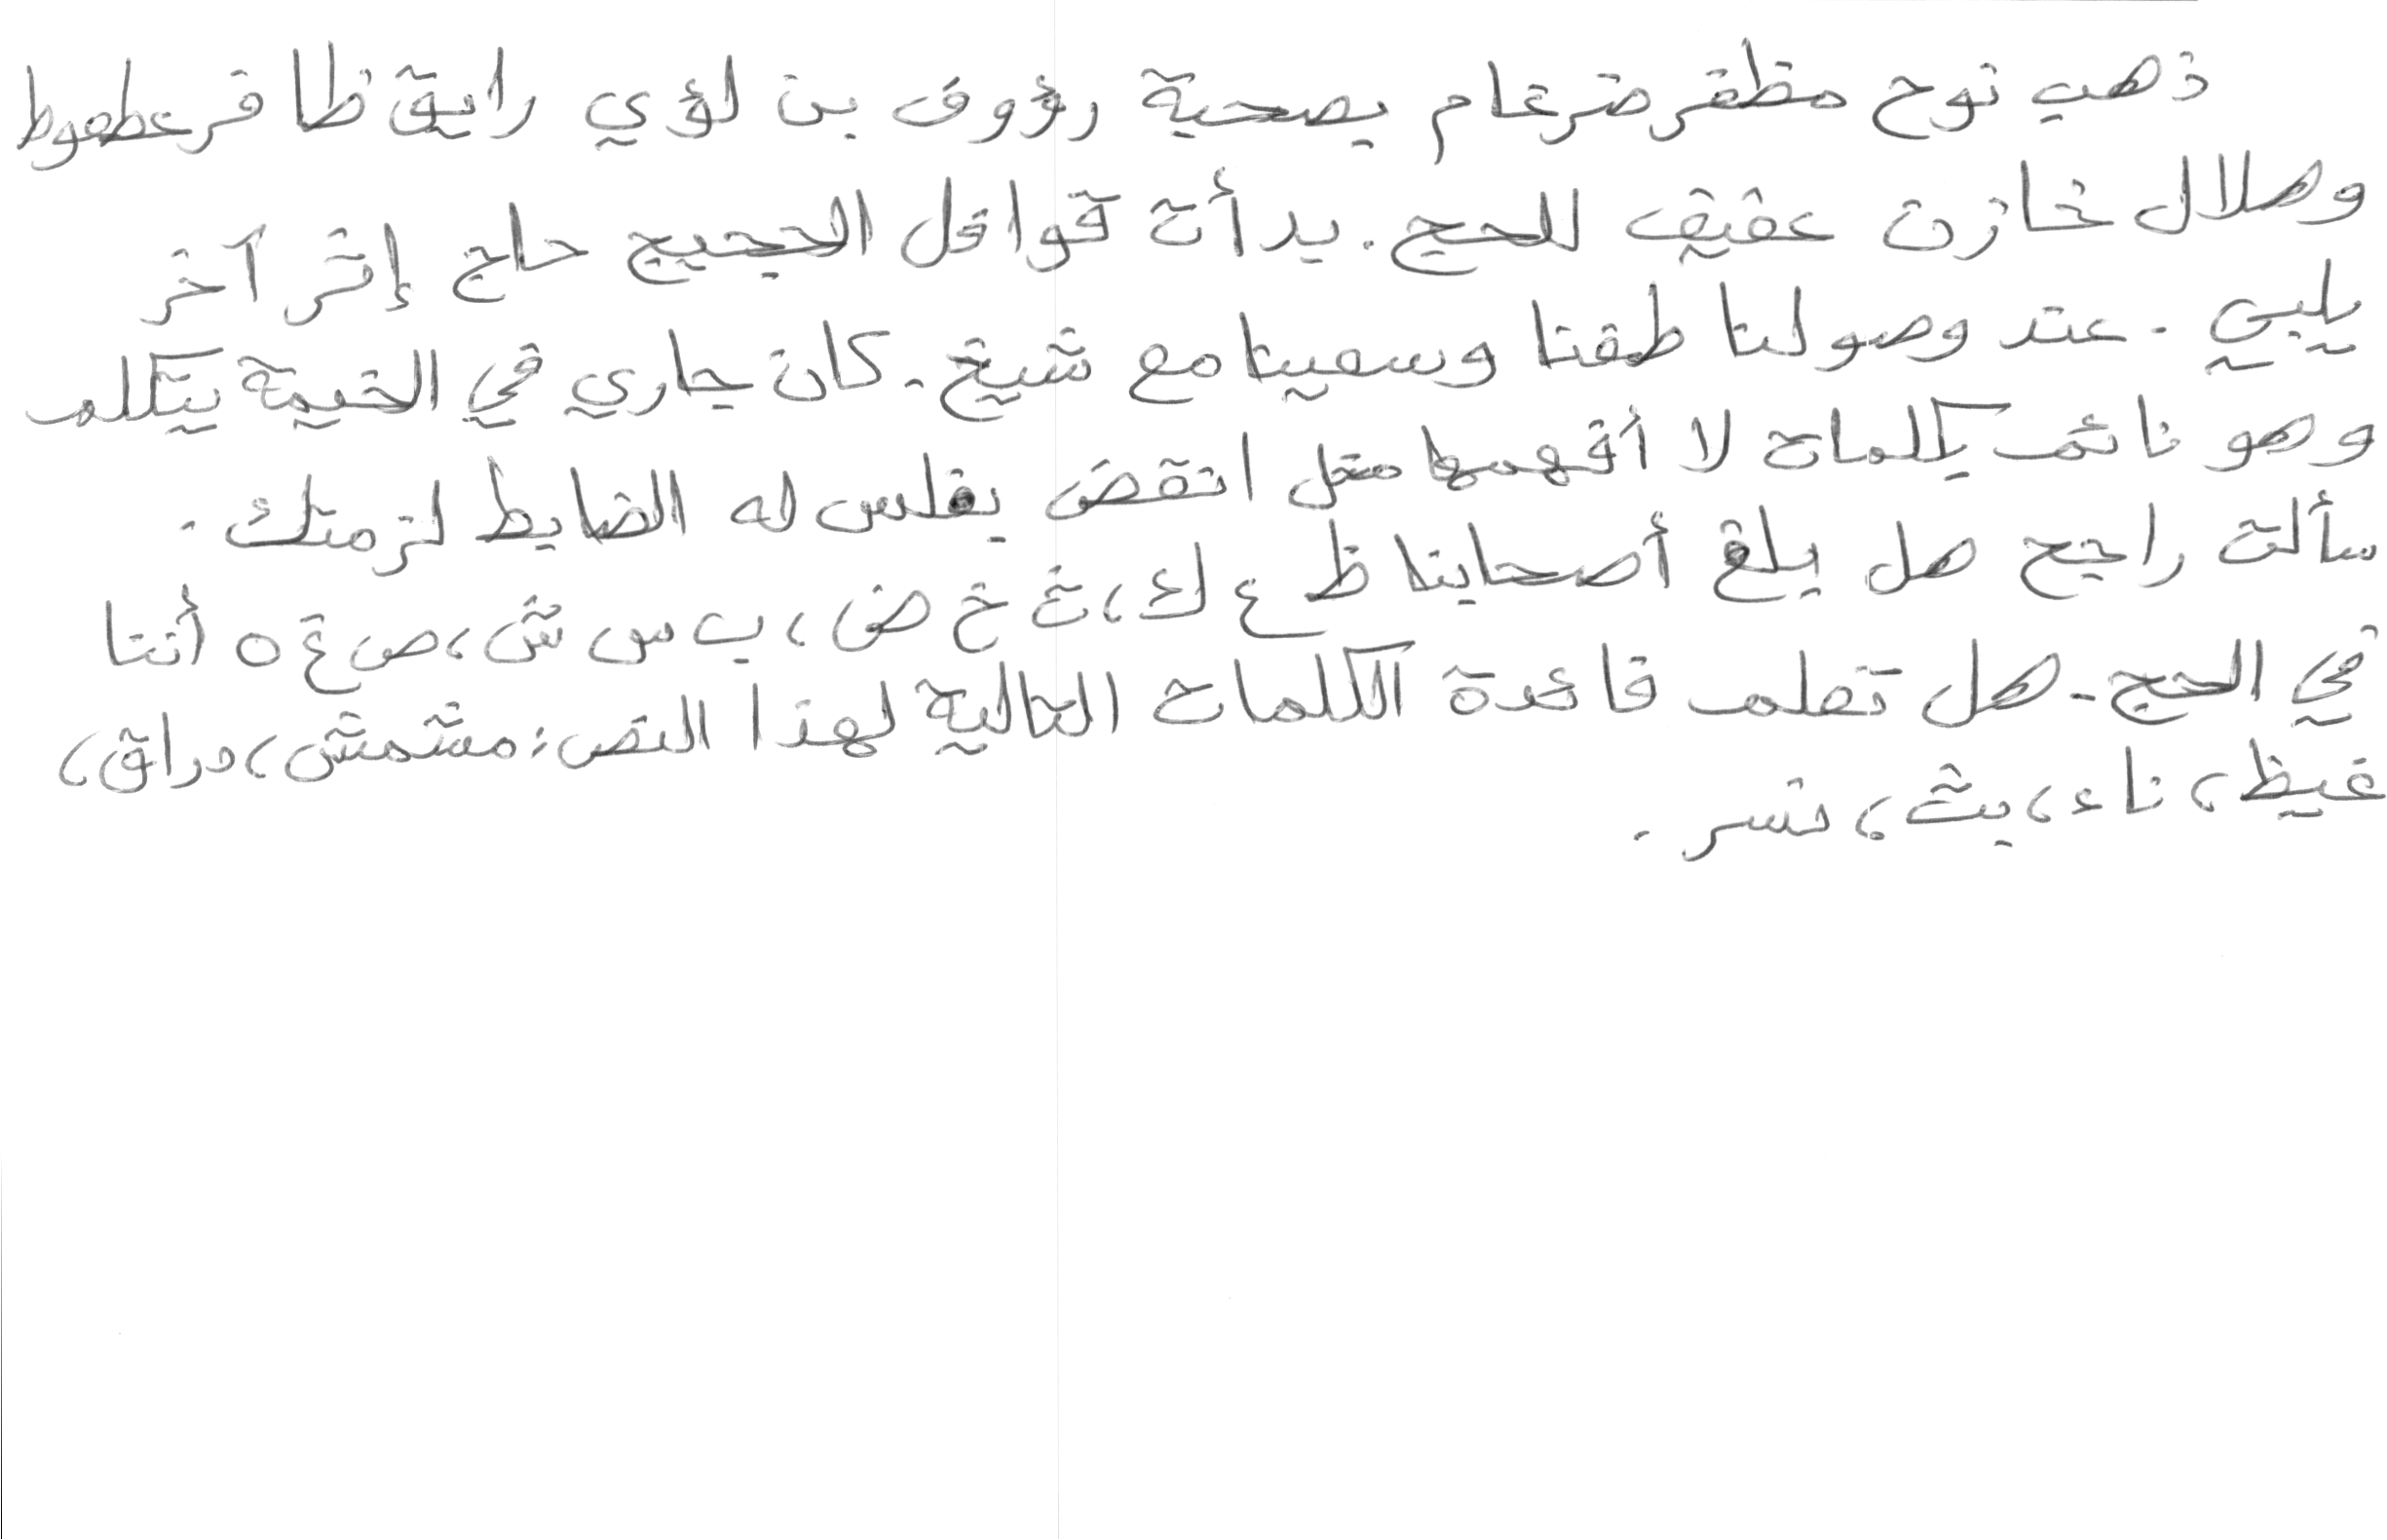 ذهب نوح مظفر ضرغام بصحبة رؤوف بن لؤي رايق ظافر عطعوط
وهلال خازن عفيف للحج. بدأت قوافل الحجيج حاج إثر آخر
يلبي. عند وصولنا طفنا وسعينا مع شيخ. كان جاري في الخيمة يتكلم
وهو نائم بكلمات لا أفهمها مثل انقض بفلس له الضابط لزمتك.
سألت راجح هل بلغ أصحابنا ظ ع ك، ث خ ض، ب س ش، ص غ ه أننا
في الحج. هل تعلم فائدة الكلمات التالية لهذا النص: مشمش، دراق،
غيظ، ناء، بث، خسر.